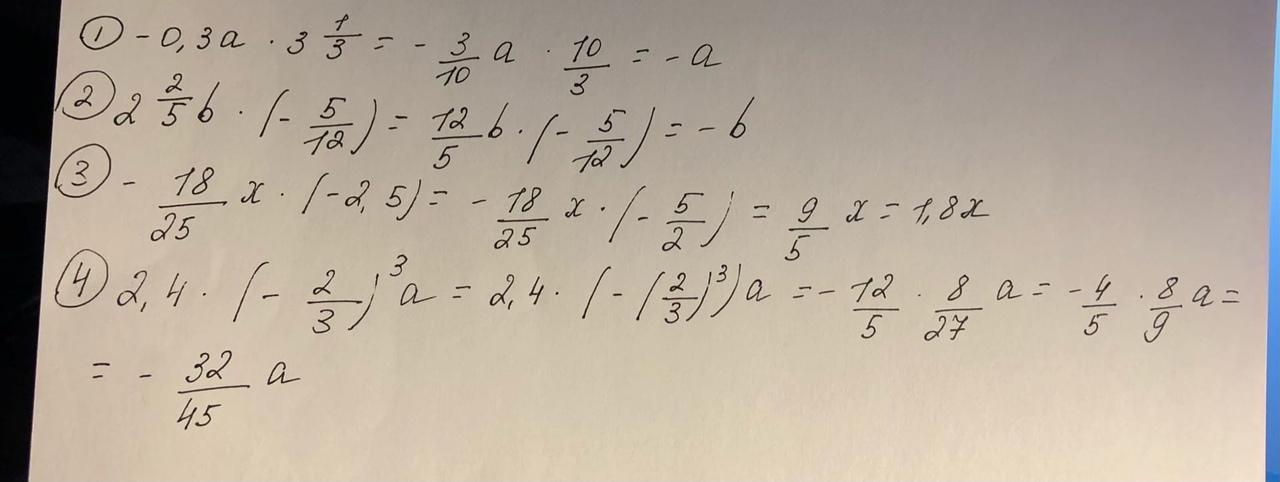 ① -0,3a · 3 1/3 = - 3/10 a · 10/3 = -a
② 2 2/5 b · (- 5/12) = 12/5 b · (- 5/12) = -b
③ - 18/25 x · (-2,5) = - 18/25 x · (- 5/2) = 9/5 x = 1,8x
④ 2,4 · (- 2/3)³ a = 2,4 · (-(2/3)³) a = - 12/5 · 8/27 a = - 4/5 · 8/9 a =
= - 32/45 a